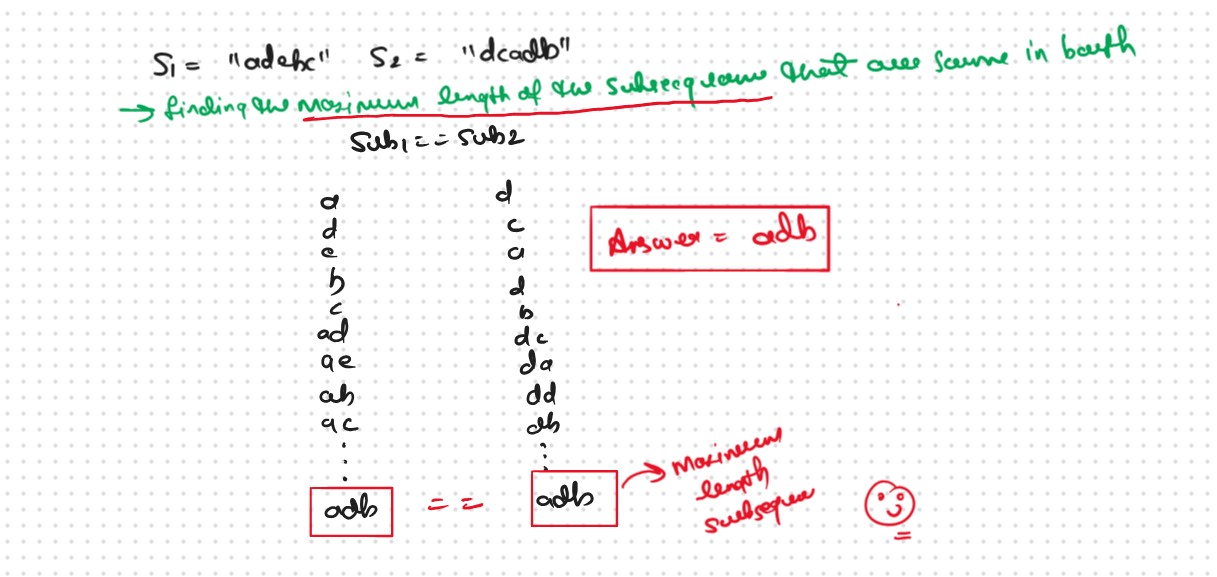 S1 = "adebc" S2 = "dcadb"
→ finding the maximum length of the subsequence that are same in bouth
Sub1 == Sub2
a d
d c
e a
b d
c b
ad dc
ae da
ab dd
ac db
adb == adb
Answer = adb
→ Maximum
length
subsequen